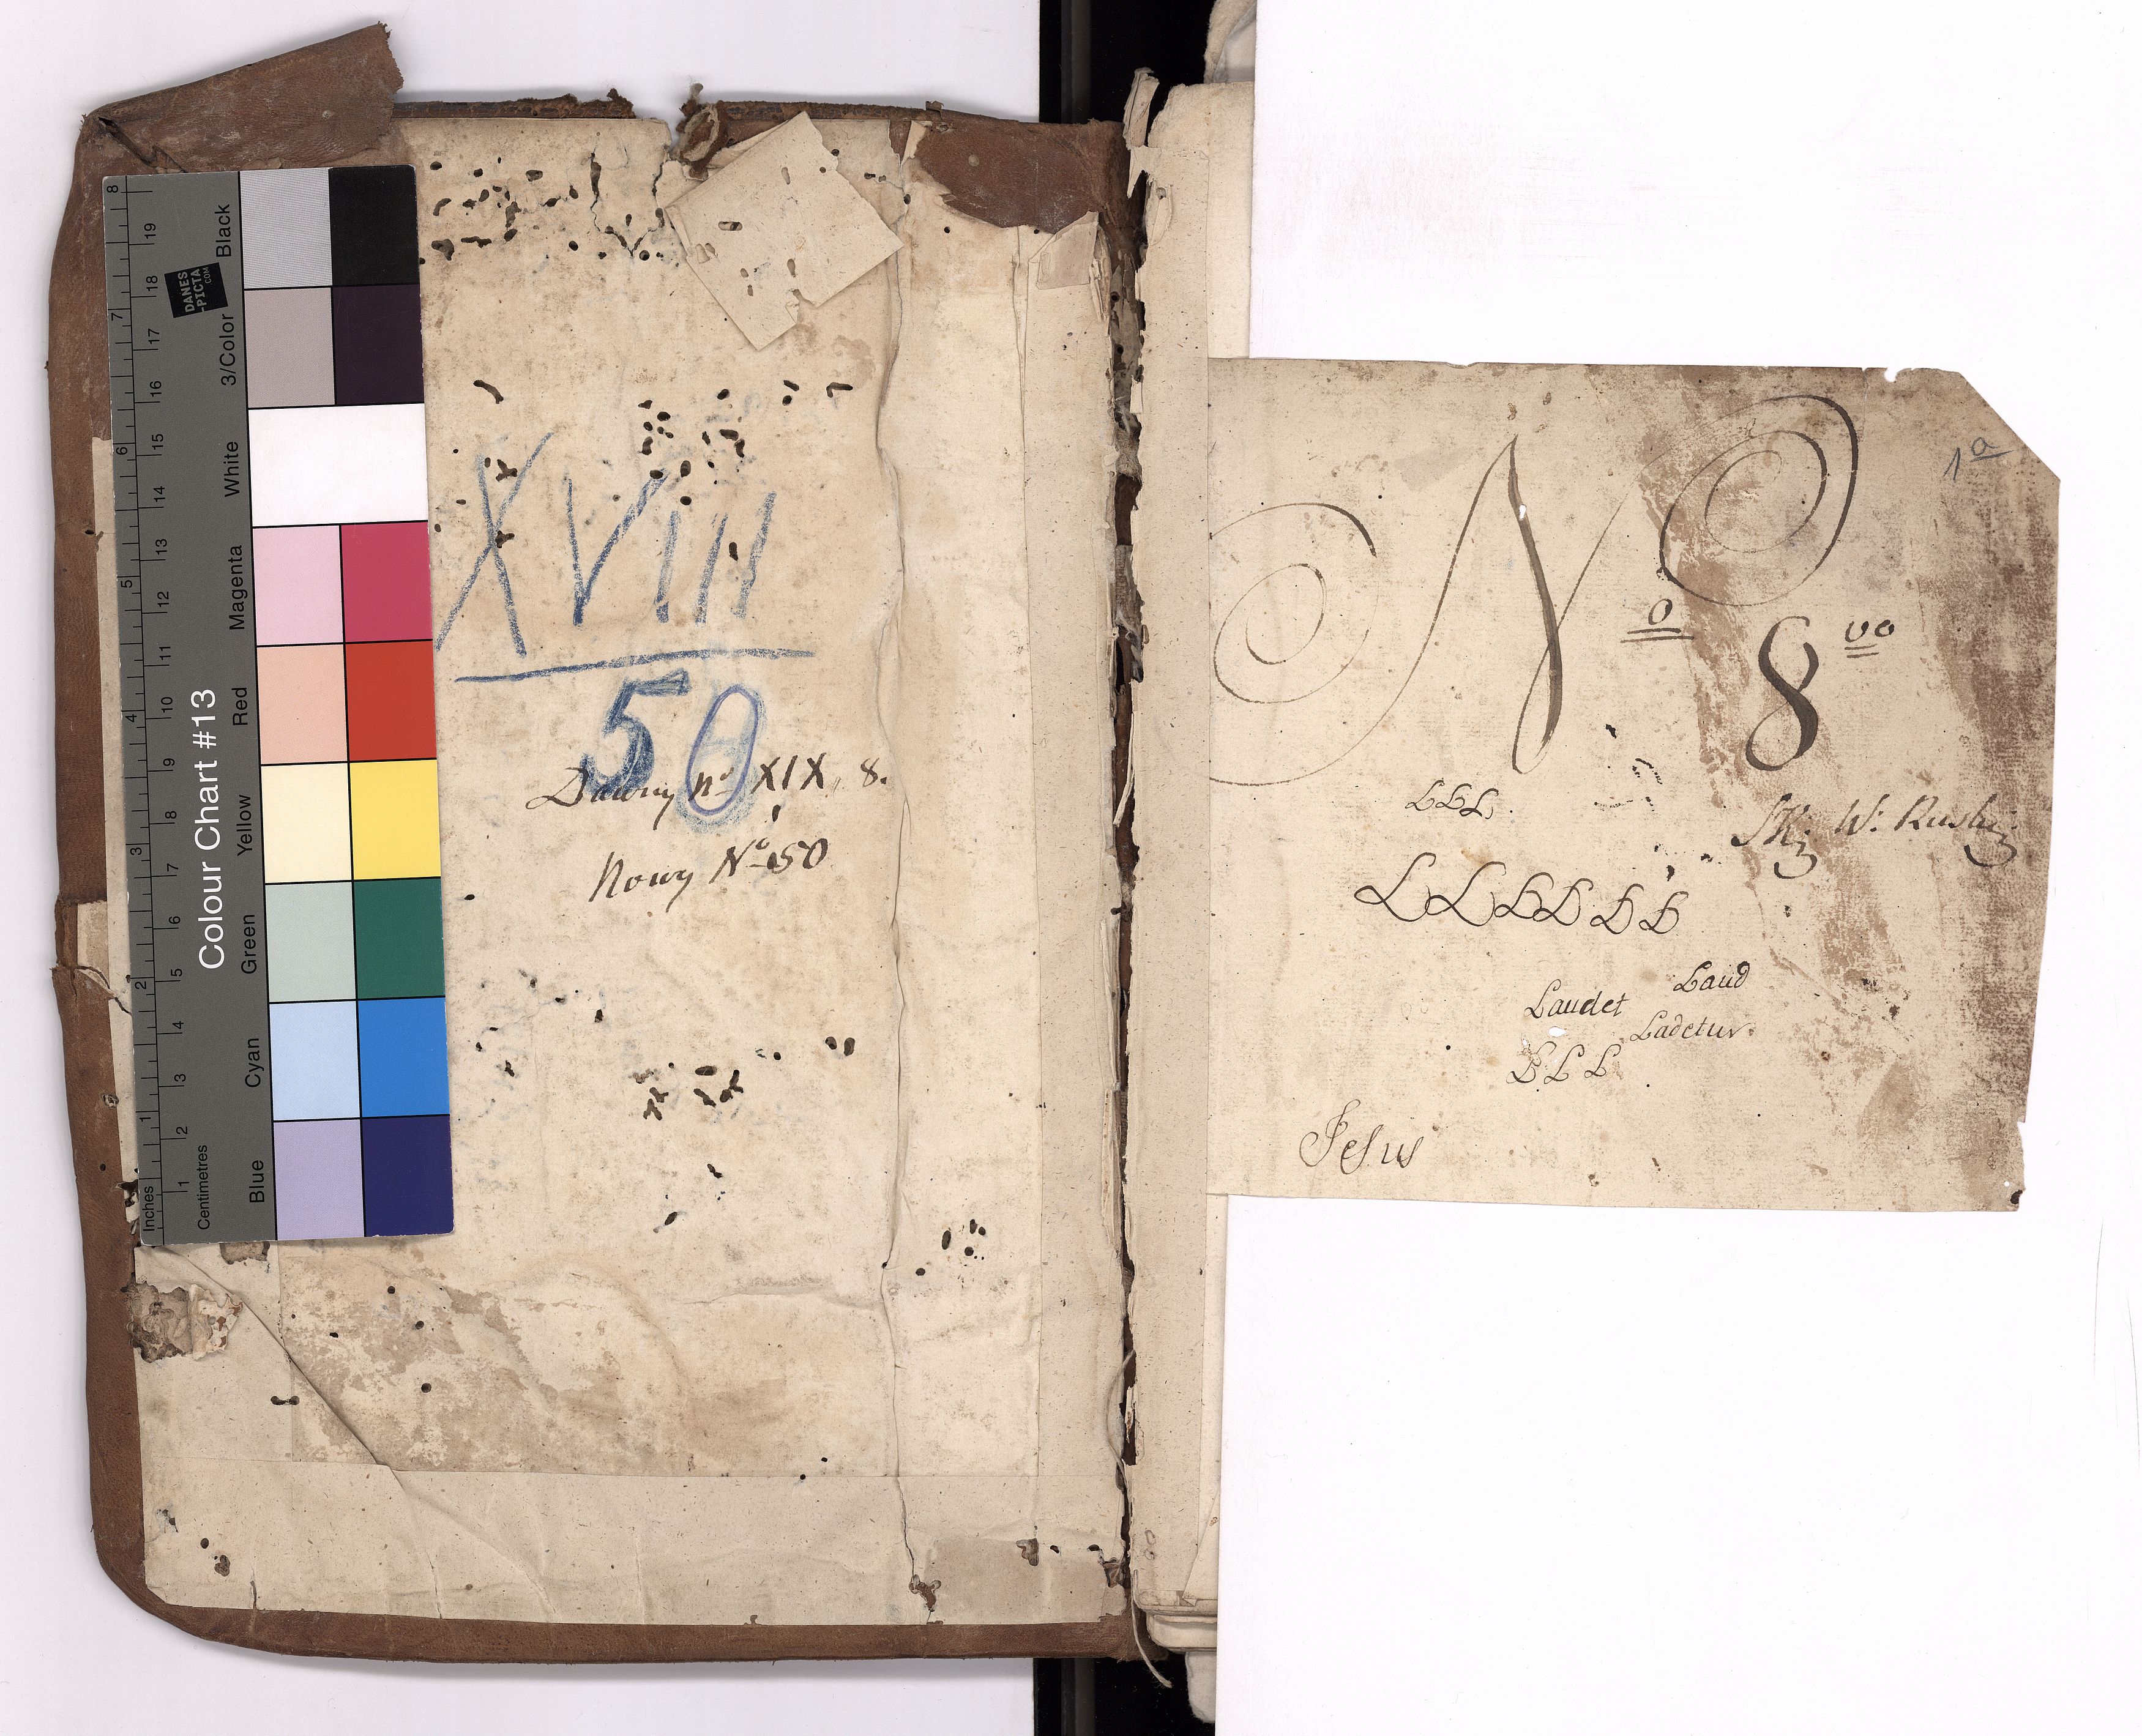 XVIII
50
Dawny nº XIX, 8.
Nowy Nº 50
8
19
18
17
16
15
14
13
12
11
10
9
8
7
6
5
4
3
2
1
Centimetres
7
6
5
4
3
2
1
Inches
DANES
-PICTA
.COM
Colour Chart #13
Black
3/Color
White
Magenta
Red
Yellow
Green
Cyan
Blue
1a
N o 8 vo
LLL
W: Rusky
LLLLLL
Laud
Laudet
Ladetur
LLL
Jesus